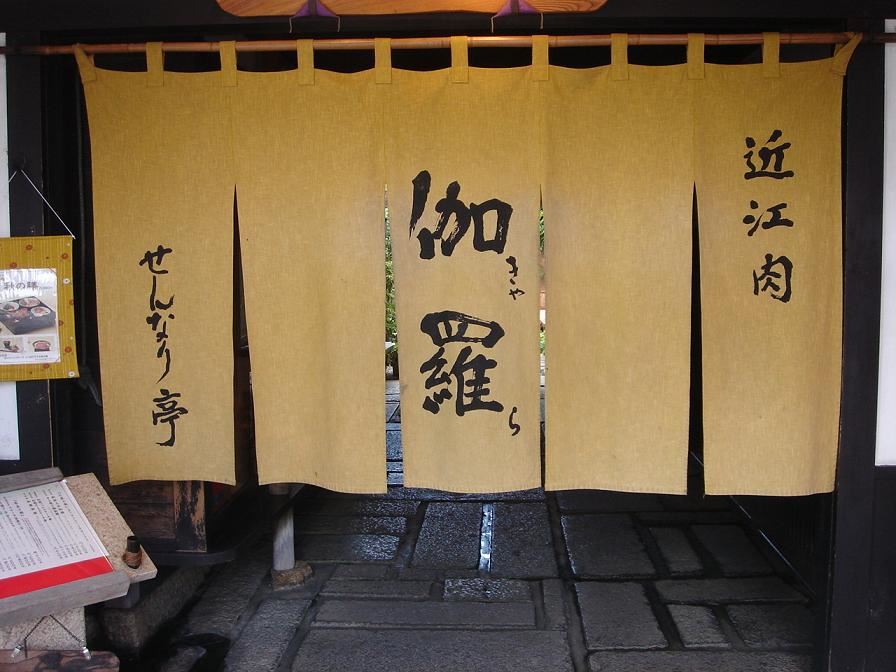 近江肉
伽羅
きゃら
せんなり亭
秋の膳